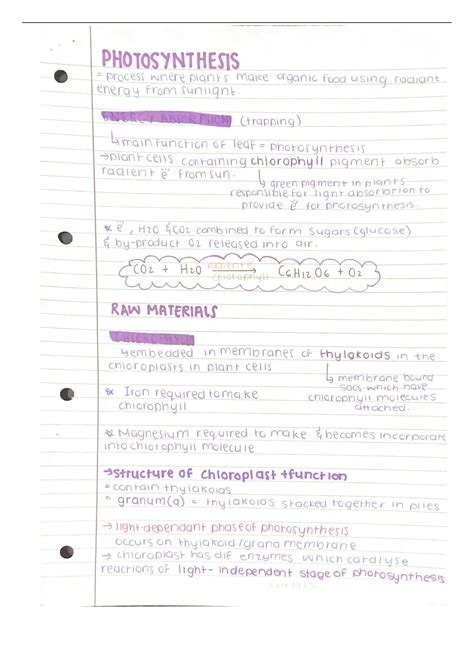 PHOTOSYNTHESIS
= process where plants make organic food using radiant
energy from sunlight.
ENERGY ABSORPTION (trapping)
↳ main function of leaf = photosynthesis
→ plant cells containing chlorophyll pigment absorb
radient ë from sun.
↳ green pigment in plants
responsible for light absorbtion to
provide ë for photosynthesis.
* ë, H2O & CO2 combined to form sugars (glucose)
& by-product O2 released into air.
CO2 + H2O radiant e chlorophyll → C6H12O6 + O2
RAW MATERIALS
CHLOROPHYLL
↳ embedded in membranes of thylakoids in the
chloroplasts in plant cells
↳ membrane bound
sacs which have
chlorophyll molecules
attached.
* Iron required to make
chlorophyll
* Magnesium required to make & becomes incorporate
into chlorophyll molecule
→ structure of chloroplast + function
° contain thylakoids
° granum(a) = thylakoids stacked together in piles
→ light-dependant phase of photosynthesis
occurs on thylakoid/grana membrane
→ chloroplast has dif enzymes which catalyse
reactions of light-independent stage of photosynthesis